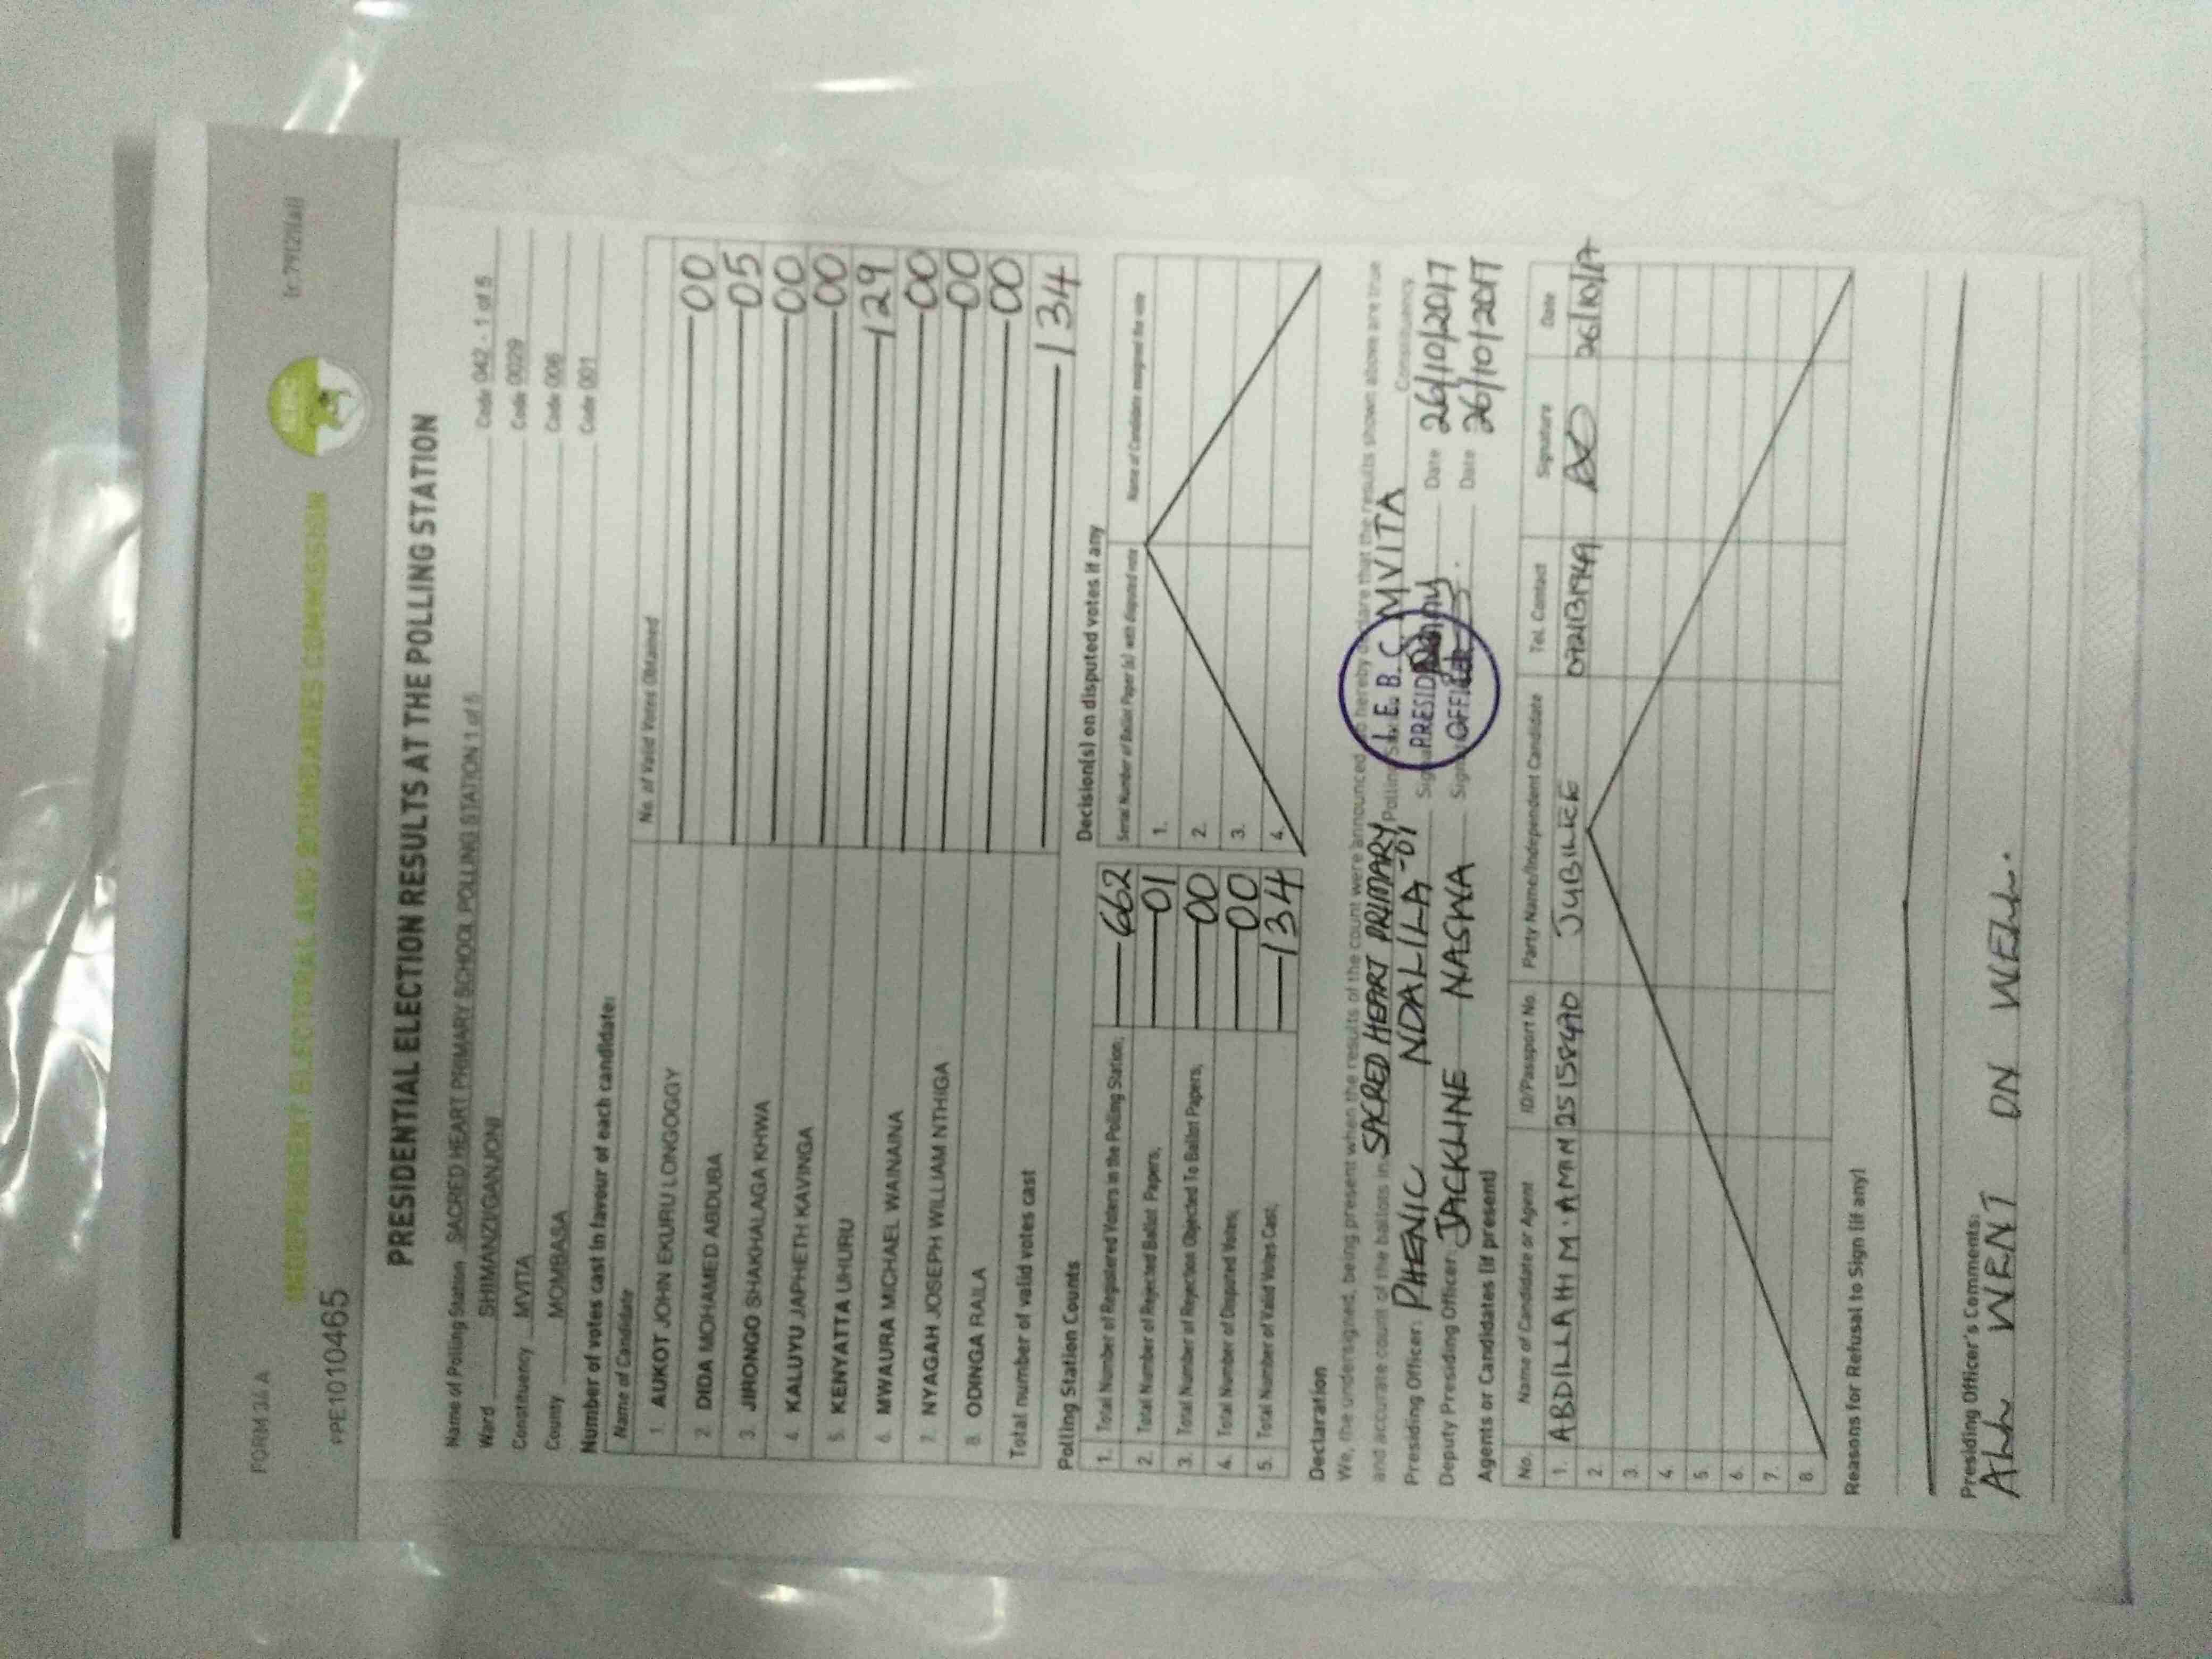 FORM 34 A
INDEPENDENT ELECTORAL AND BOUNDARIES COMMISSION
PPE1010465
PRESIDENTIAL ELECTION RESULTS AT THE POLLING STATION
Name of Polling Station SACRED HEART PRIMARY SCHOOL POLLING STATION 1 of 5 Code 042 - 1 of 5
Ward SHIMANZI/GANJONI Code 0029
Constituency MVITA Code 006
County MOMBASA Code 001
Number of votes cast in favour of each candidate:
Name of Candidate No. of Valid Votes Obtained
1. AUKOT JOHN EKURU LONGOGGY 00
2. DIDA MOHAMED ABDUBA 05
3. JIRONGO SHAKHALAGA KHWA 00
4. KALUYU JAPHETH KAVINGA 00
5. KENYATTA UHURU 129
6. MWAURA MICHAEL WAINAINA 00
7. NYAGAH JOSEPH WILLIAM NTHIGA 00
8. ODINGA RAILA 00
Total number of valid votes cast 134
Polling Station Counts
1. Total Number of Registered Voters in the Polling Station; 662
2. Total Number of Rejected Ballot Papers; 01
3. Total Number of Rejection Objected To Ballot Papers; 00
4. Total Number of Disputed Votes; 00
5. Total Number of Valid Votes Cast; 134
Decision(s) on disputed votes if any
Serial Number of Ballot Paper (s) with disputed vote Name of Candidate assigned the vote
1.
2.
3.
4.
Declaration
We, the undersigned, being present when the results of the count were announced, do hereby declare that the results shown above are true
and accurate count of the ballots in SACRED HEART PRIMARY -01 Polling Station MVITA Constituency
Presiding Officer: PHENIC NDALILA Date 26/10/2017
Deputy Presiding Officer: JACKLINE NASWA Date 26/10/2017
I. E. B. C
PRESIDING
OFFICER
Agents or Candidates (if present)
No. Name of Candidate or Agent ID/Passport No. Party Name/Independent Candidate Tel. Contact Signature Date
1. ABDILLAH M. AMIN 25158970 JUBILEE 26/10/17
2.
3.
4.
5.
6.
7.
8.
Reasons for Refusal to Sign (if any)
Presiding Officer's Comments:
ALL WENT ON WELL.